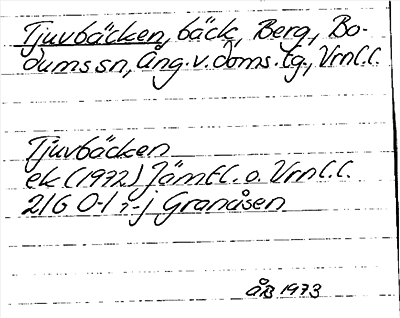 Tjuvbäcken, bäck, Berg, Bo-
dums sn, Ång.v.doms.tg, Vrnl.l.
Tjuvbäcken
ek (1972) Jämtl. o. Vrnl.l.
21G 0-1 i-j Granåsen
ÅB 1973